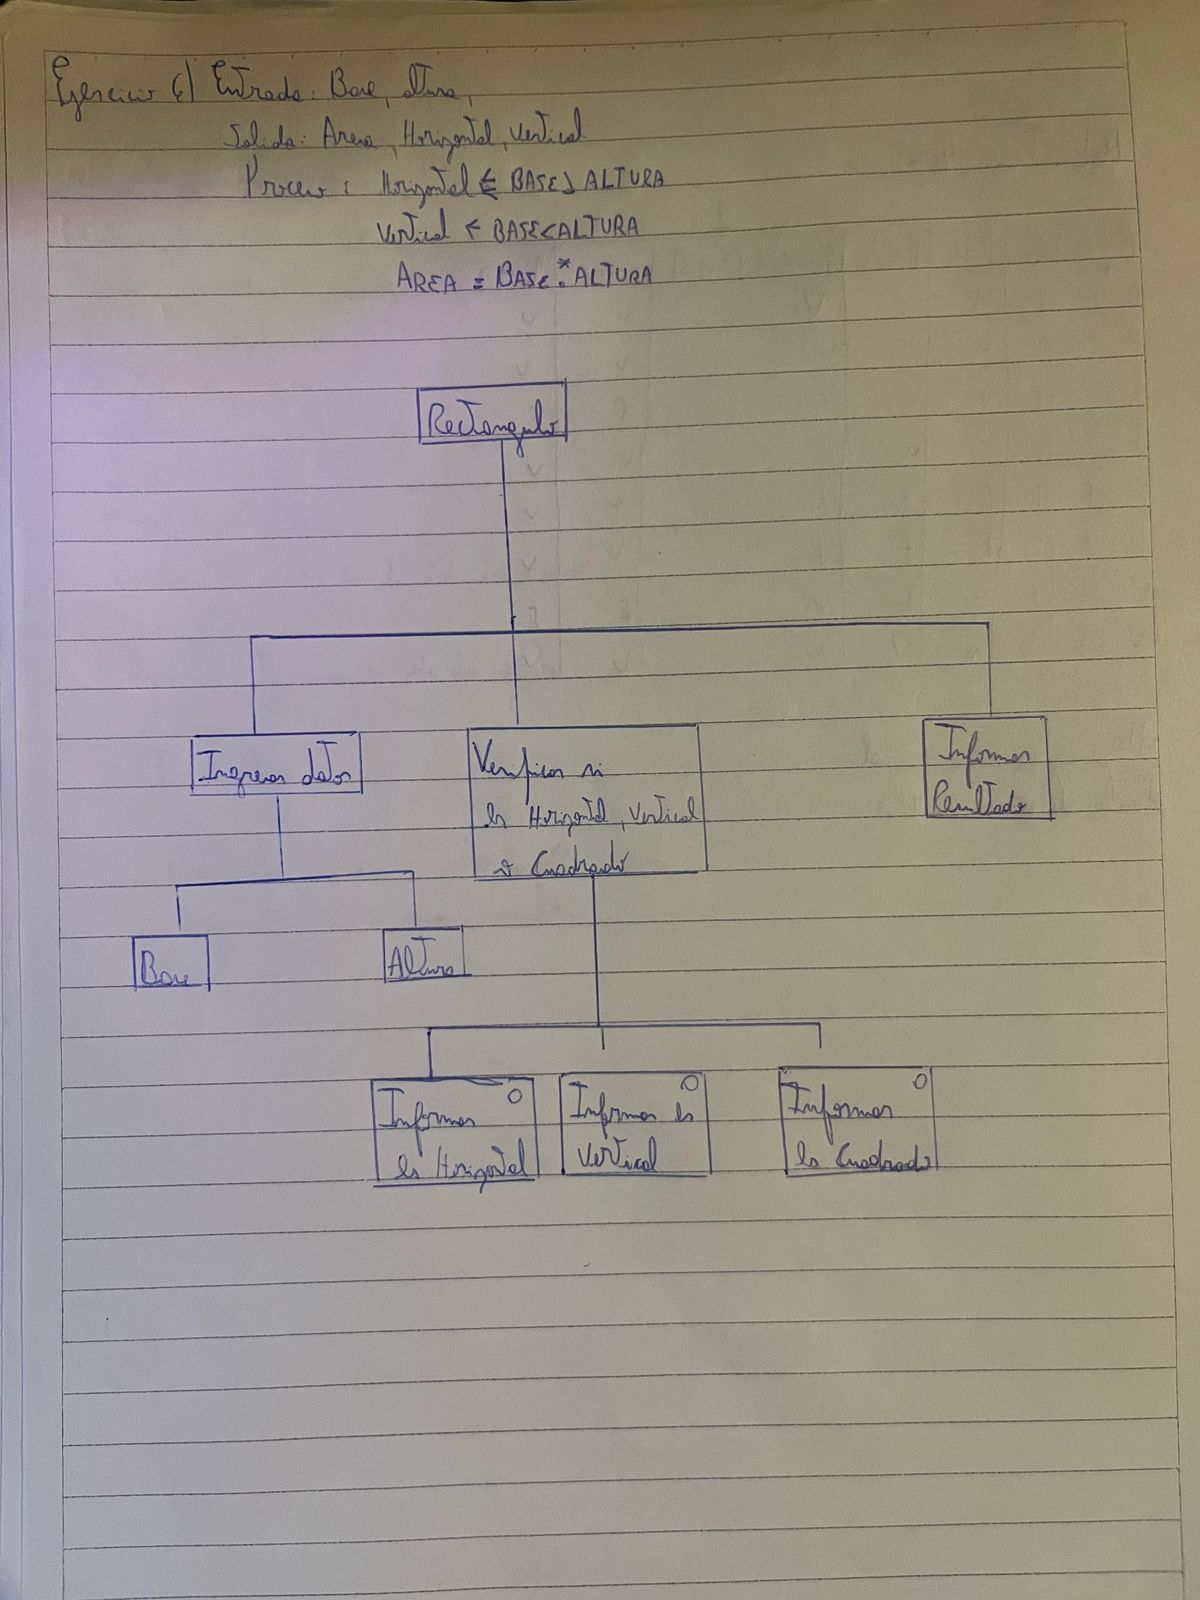 Ejercicio 6) Entrada: Base, altura,
Salida: Area, Horizontal, Vertical
Proceso: Horizontal ← BASE > ALTURA
Vertical ← BASE < ALTURA
AREA = BASE * ALTURA
Rectangulo
Ingresar datos
Verificar si
es Horizontal, Vertical
o Cuadrado
Informar
Resultado
Base
Altura
Informar
es Horizontal
Informar es
Vertical
Informar
es Cuadrado